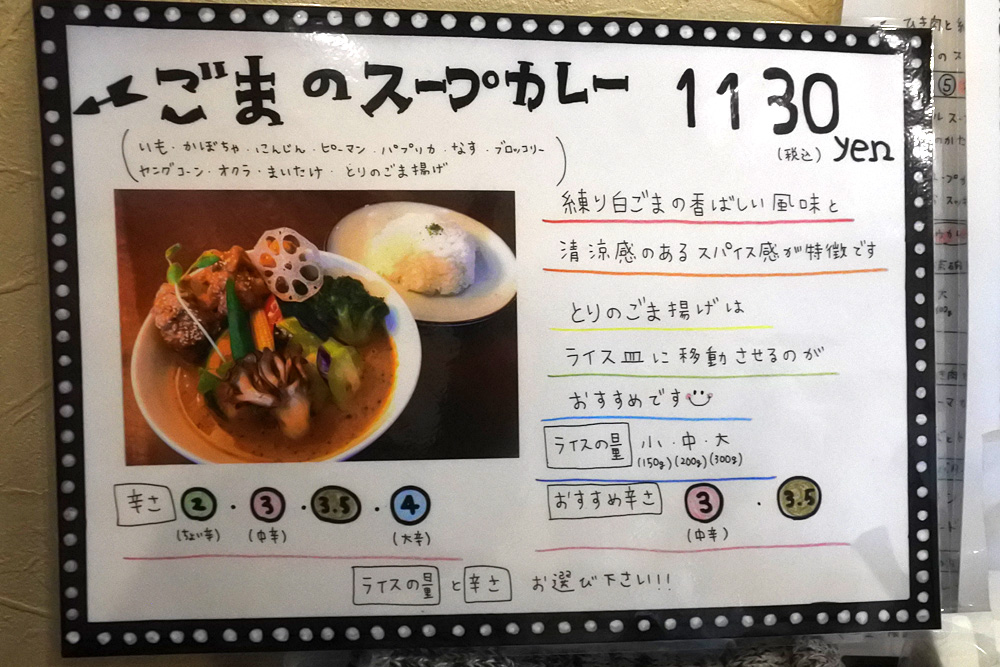 ごまのスープカレー 1130
(税込) yen
(いも・かぼちゃ・にんじん・ピーマン・パプリカ・なす・ブロッコリー
ヤングコーン・オクラ・まいたけ・とりのごま揚げ)
練り白ごまの香ばしい風味と
清涼感のあるスパイス感が特徴です
とりのごま揚げは
ライス皿に移動させるのが
おすすめです
ライスの量 小・中・大
(150g)(200g)(300g)
辛さ 2・3・3.5・4
(ちょい辛) (中辛) (大辛)
おすすめ辛さ 3・3.5
(中辛)
ライスの量と辛さ お選び下さい!!!
ひき肉と
⑤